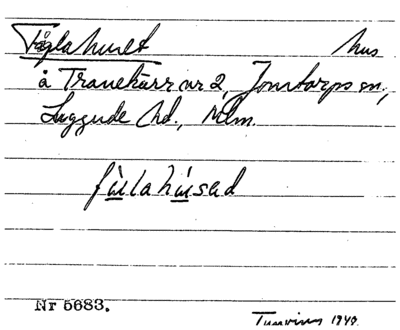 Fåglahuset hus
å Tranekärr nr 2, Jonstorps sn,
Luggude hd., Mlm.
fùlahúsad
Nr 5683.
Tunvius 1948.